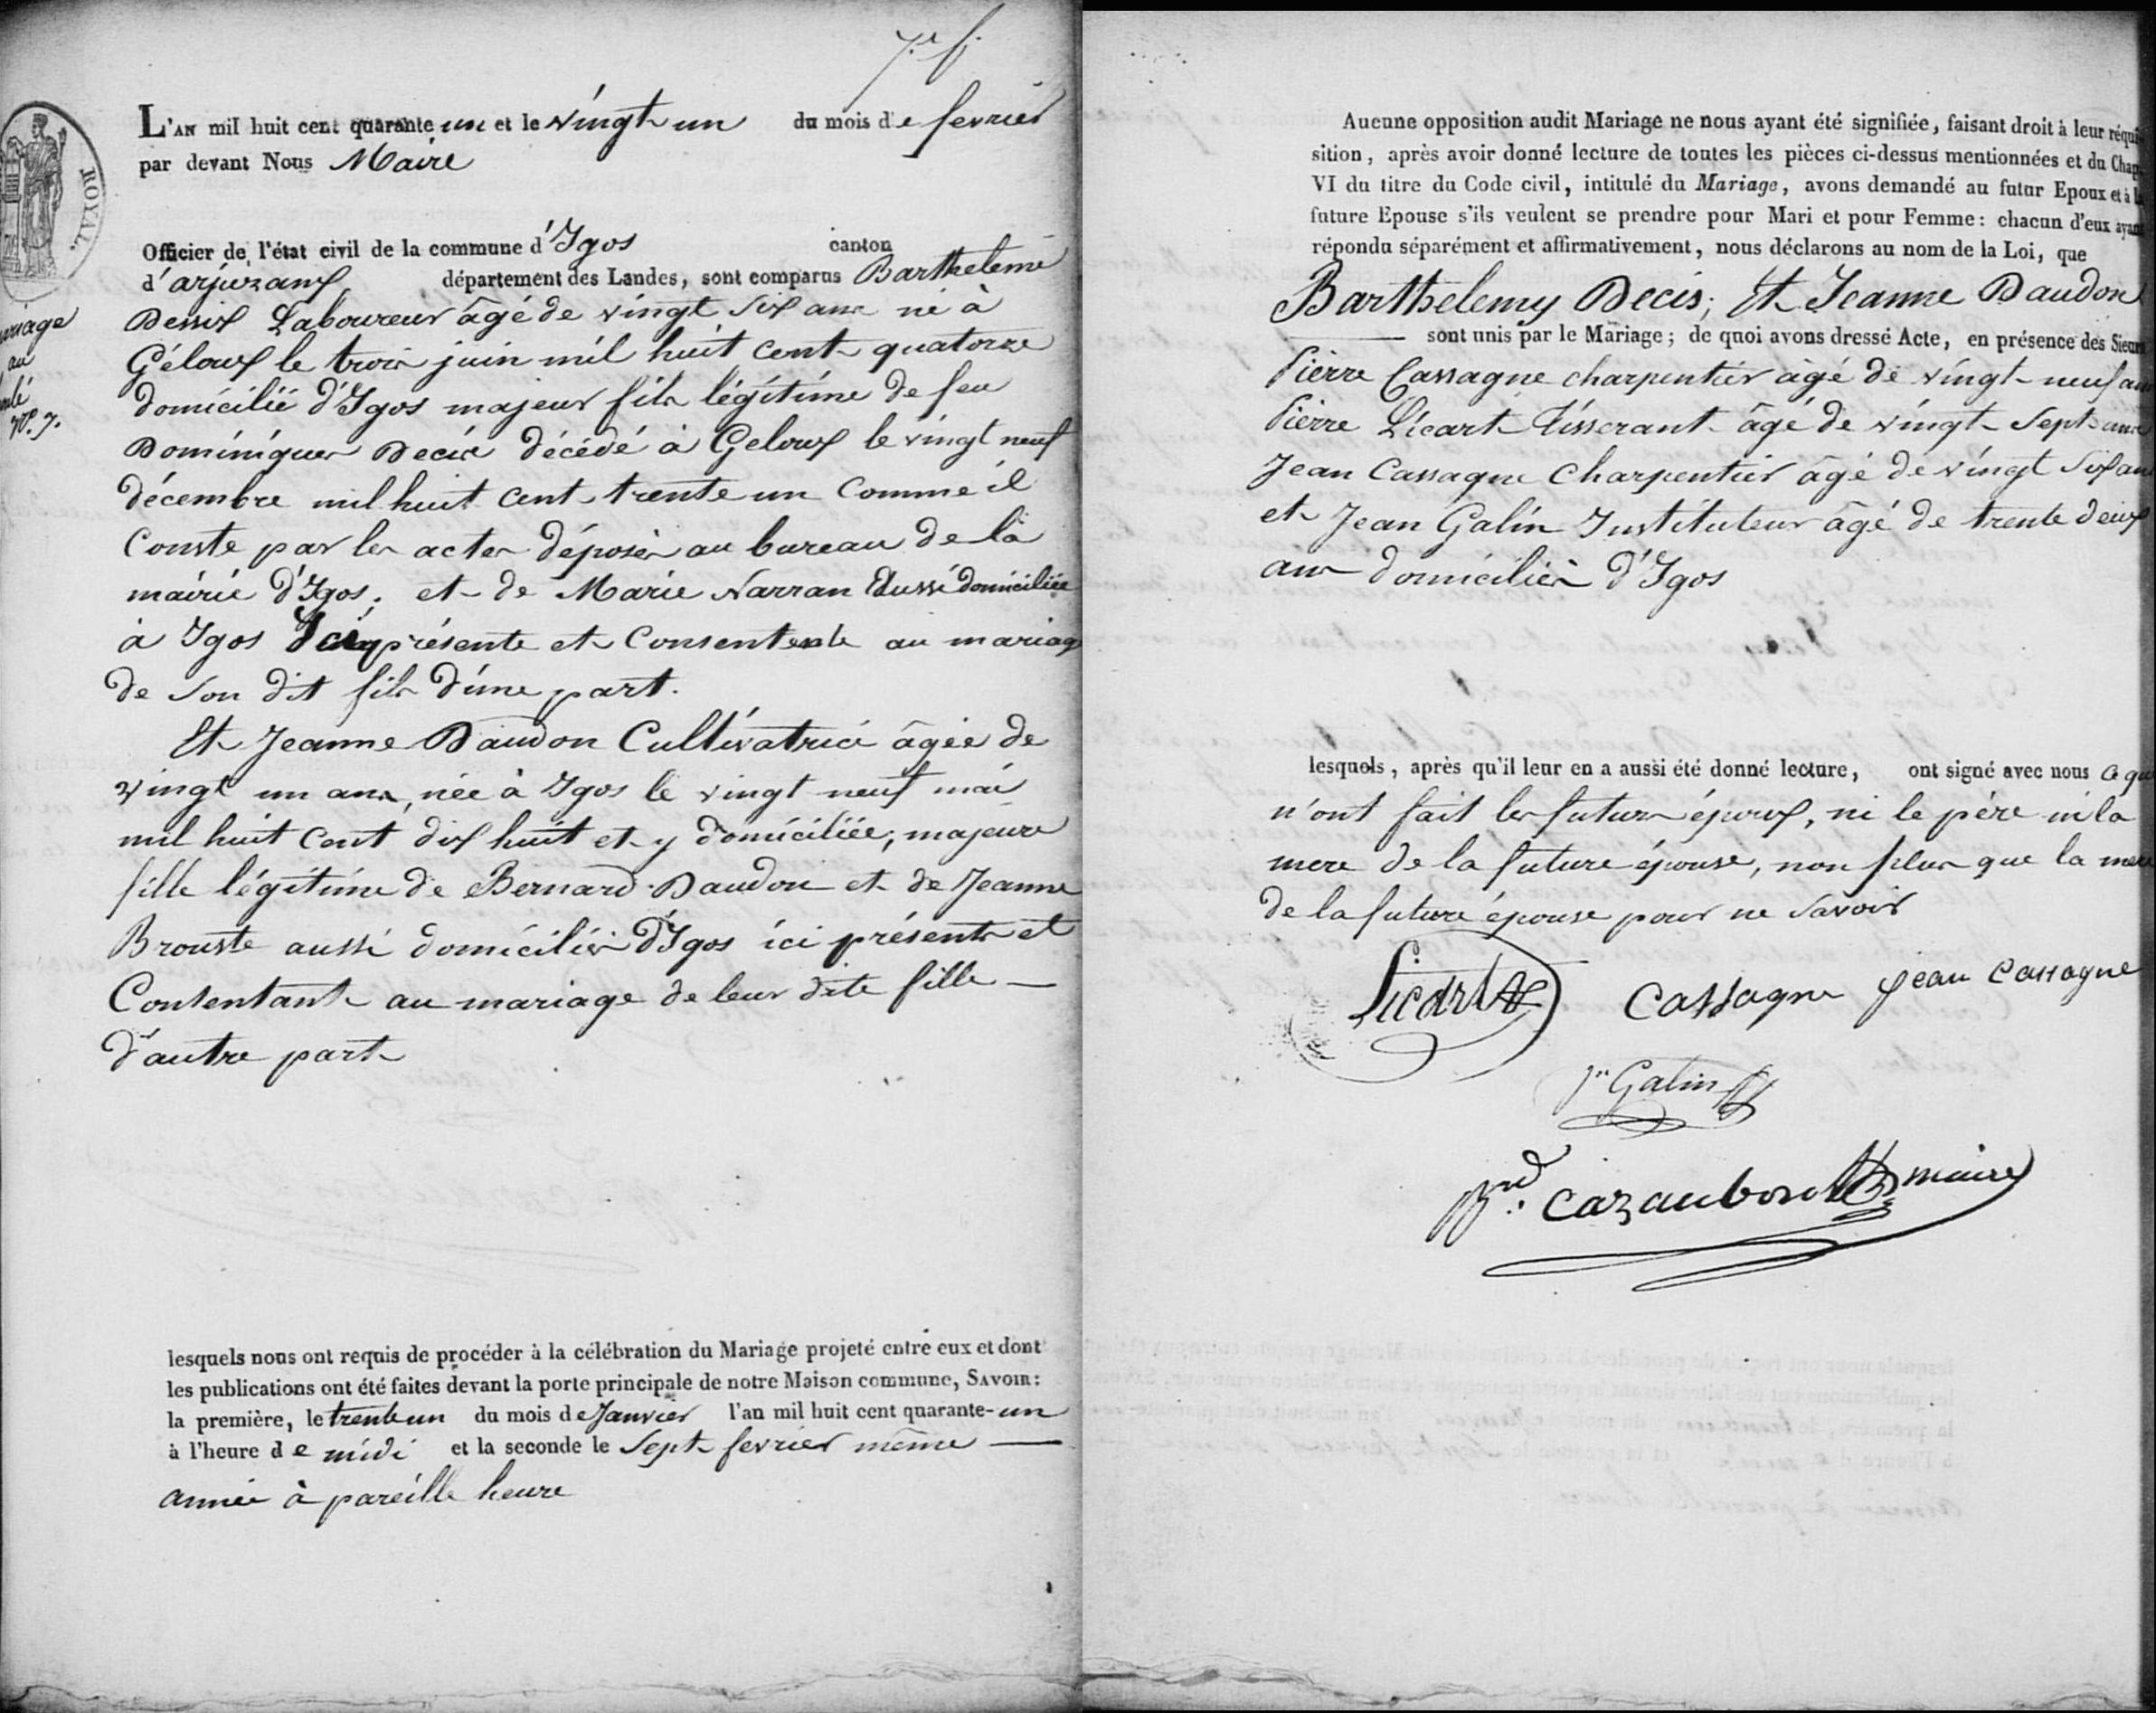 7.e f.
L'AN mil huit cent quarante un et le vingt un du mois de fevrier
par devant Nous Maire
Officier de l'état civil de la commune d'Ygos canton
d'arjuzanx département des Landes, sont comparus Barthelemi
ROYAL.
mariage
au
N.º 7.
Dessix Laboureur âgé de vingt six ans né à
Géloux le trois juin mil huit cent quatorze
domicilié d'Ygos majeur fils légitime de feu
Dominiques Decis décédé à Geloux le vingt neuf
décembre mil huit cent trente un comme il
Conste par les actes déposés au bureau de la
mairie d'Ygos; et de Marie Narran aussi domiciliée
à Ygos Ici présente et Consentente au mariage
de son dit fils d'une part.
Et Jeanne Daudon Cultivatrice âgée de
vingt un ans, née à Ygos le vingt neuf mai
mil huit cent dix huit et y domiciliée, majeure
fille légitime de Bernard Daudon et de Jeanne
Brouste aussi domiciliés d'Ygos ici présents et
Consentants au mariage de leur dite fille —
d'autre part
lesquels nous ont requis de procéder à la célébration du Mariage projeté entre eux et dont
les publications ont été faites devant la porte principale de notre Maison commune, SAVOIR:
la première, le trente un du mois de Janvier l'an mil huit cent quarante-un
à l'heure de midi et la seconde le Sept fevrier même —
année à pareille heure
Aucune opposition audit Mariage ne nous ayant été signifiée, faisant droit à leur réqui
sition, après avoir donné lecture de toutes les pièces ci-dessus mentionnées et du Chap.
VI du titre du Code civil, intitulé du Mariage, avons demandé au futur Epoux et à la
future Epouse s'ils veulent se prendre pour Mari et pour Femme: chacun d'eux ayant
répondu séparément et affirmativement, nous déclarons au nom de la Loi, que
Barthelemy Decis, Et Jeanne Daudon
— sont unis par le Mariage; de quoi avons dressé Acte, en présence des Sieurs
Pierre Cassagne charpentier âgé de vingt-neuf ans
Pierre Licart Tisserant âgé de vingt-Sept ans
Jean Cassagne Charpentier âgé de vingt six ans
et Jean Galin Instituteur âgé de trente deux
ans domiciliés d'Ygos
lesquels, après qu'il leur en a aussi été donné lecture, ont signé avec nous ce que
n'ont fait les futurs époux, ni le père ni la
mere de la future épouse, non plus que la mere
de la future épouse pour ne savoir
Licart Cassagne jean Cassagne
Jn Galin
Bnd. Cazaubon maire